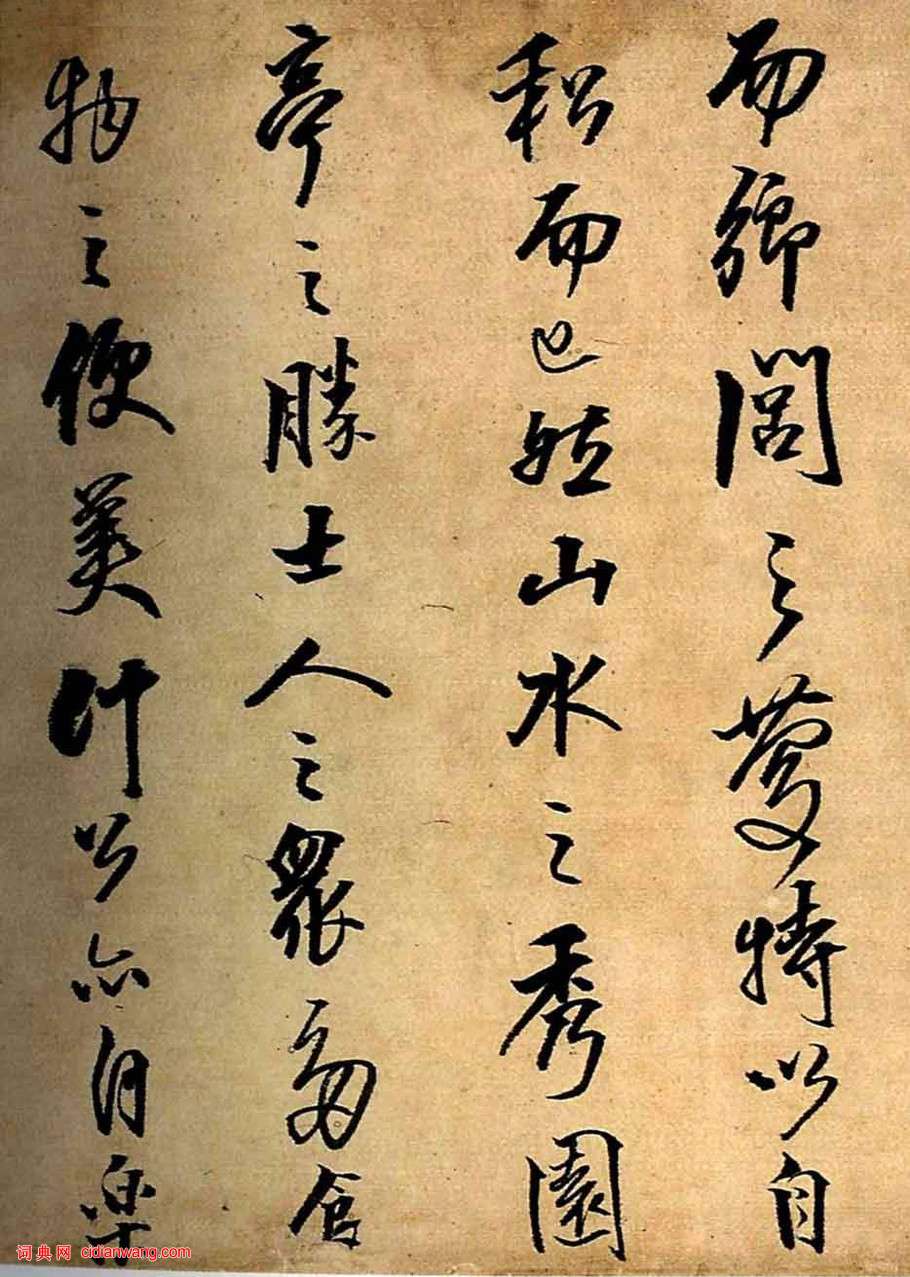 而鄉閭之特以自
而已然山水之秀園
亭之勝士人之衆食
物之便美計公亦自樂
词典网 cidianwang.com